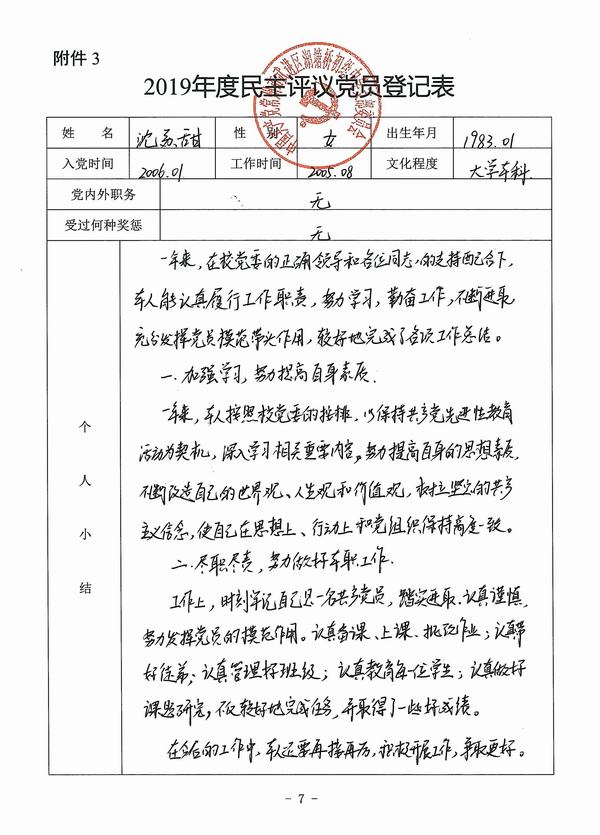 附件 3
2019年度民主评议党员登记表
姓 名 沈苏甜 性 别 女 出生年月 1983.01
入党时间 2006.01 工作时间 2005.08 文化程度 大学本科
党内外职务 无
受过何种奖惩 无
个人小结
一年来，在校党委的正确领导和各位同志的支持配合下，
本人能认真履行工作职责，努力学习，勤奋工作，不断进取
充分发挥党员模范带头作用，较好地完成了各项工作总结。
一.加强学习，努力提高自身素质.
一年来，本人按照校党委的安排，以保持共产党先进性教育
活动为契机，深入学习相关重要内容。努力提高自身的思想素质，
不断改造自己的世界观、人生观和价值观，树立坚定的共产
主义信念，使自己在思想上、行动上和党组织保持高度一致。
二.尽职尽责，努力做好本职工作.
工作上，时刻牢记自己是一名共产党员，踏实进取.认真谨慎，
努力发挥党员的模范作用。认真备课、上课、批改作业；认真带
好徒弟；认真管理好班级；认真教育每一位学生；认真做好
课题研究，不仅较好地完成任务，并取得了一些好成绩。
在今后的工作中，本人还要再接再厉，积极开展工作，争取更好。
- 7 -